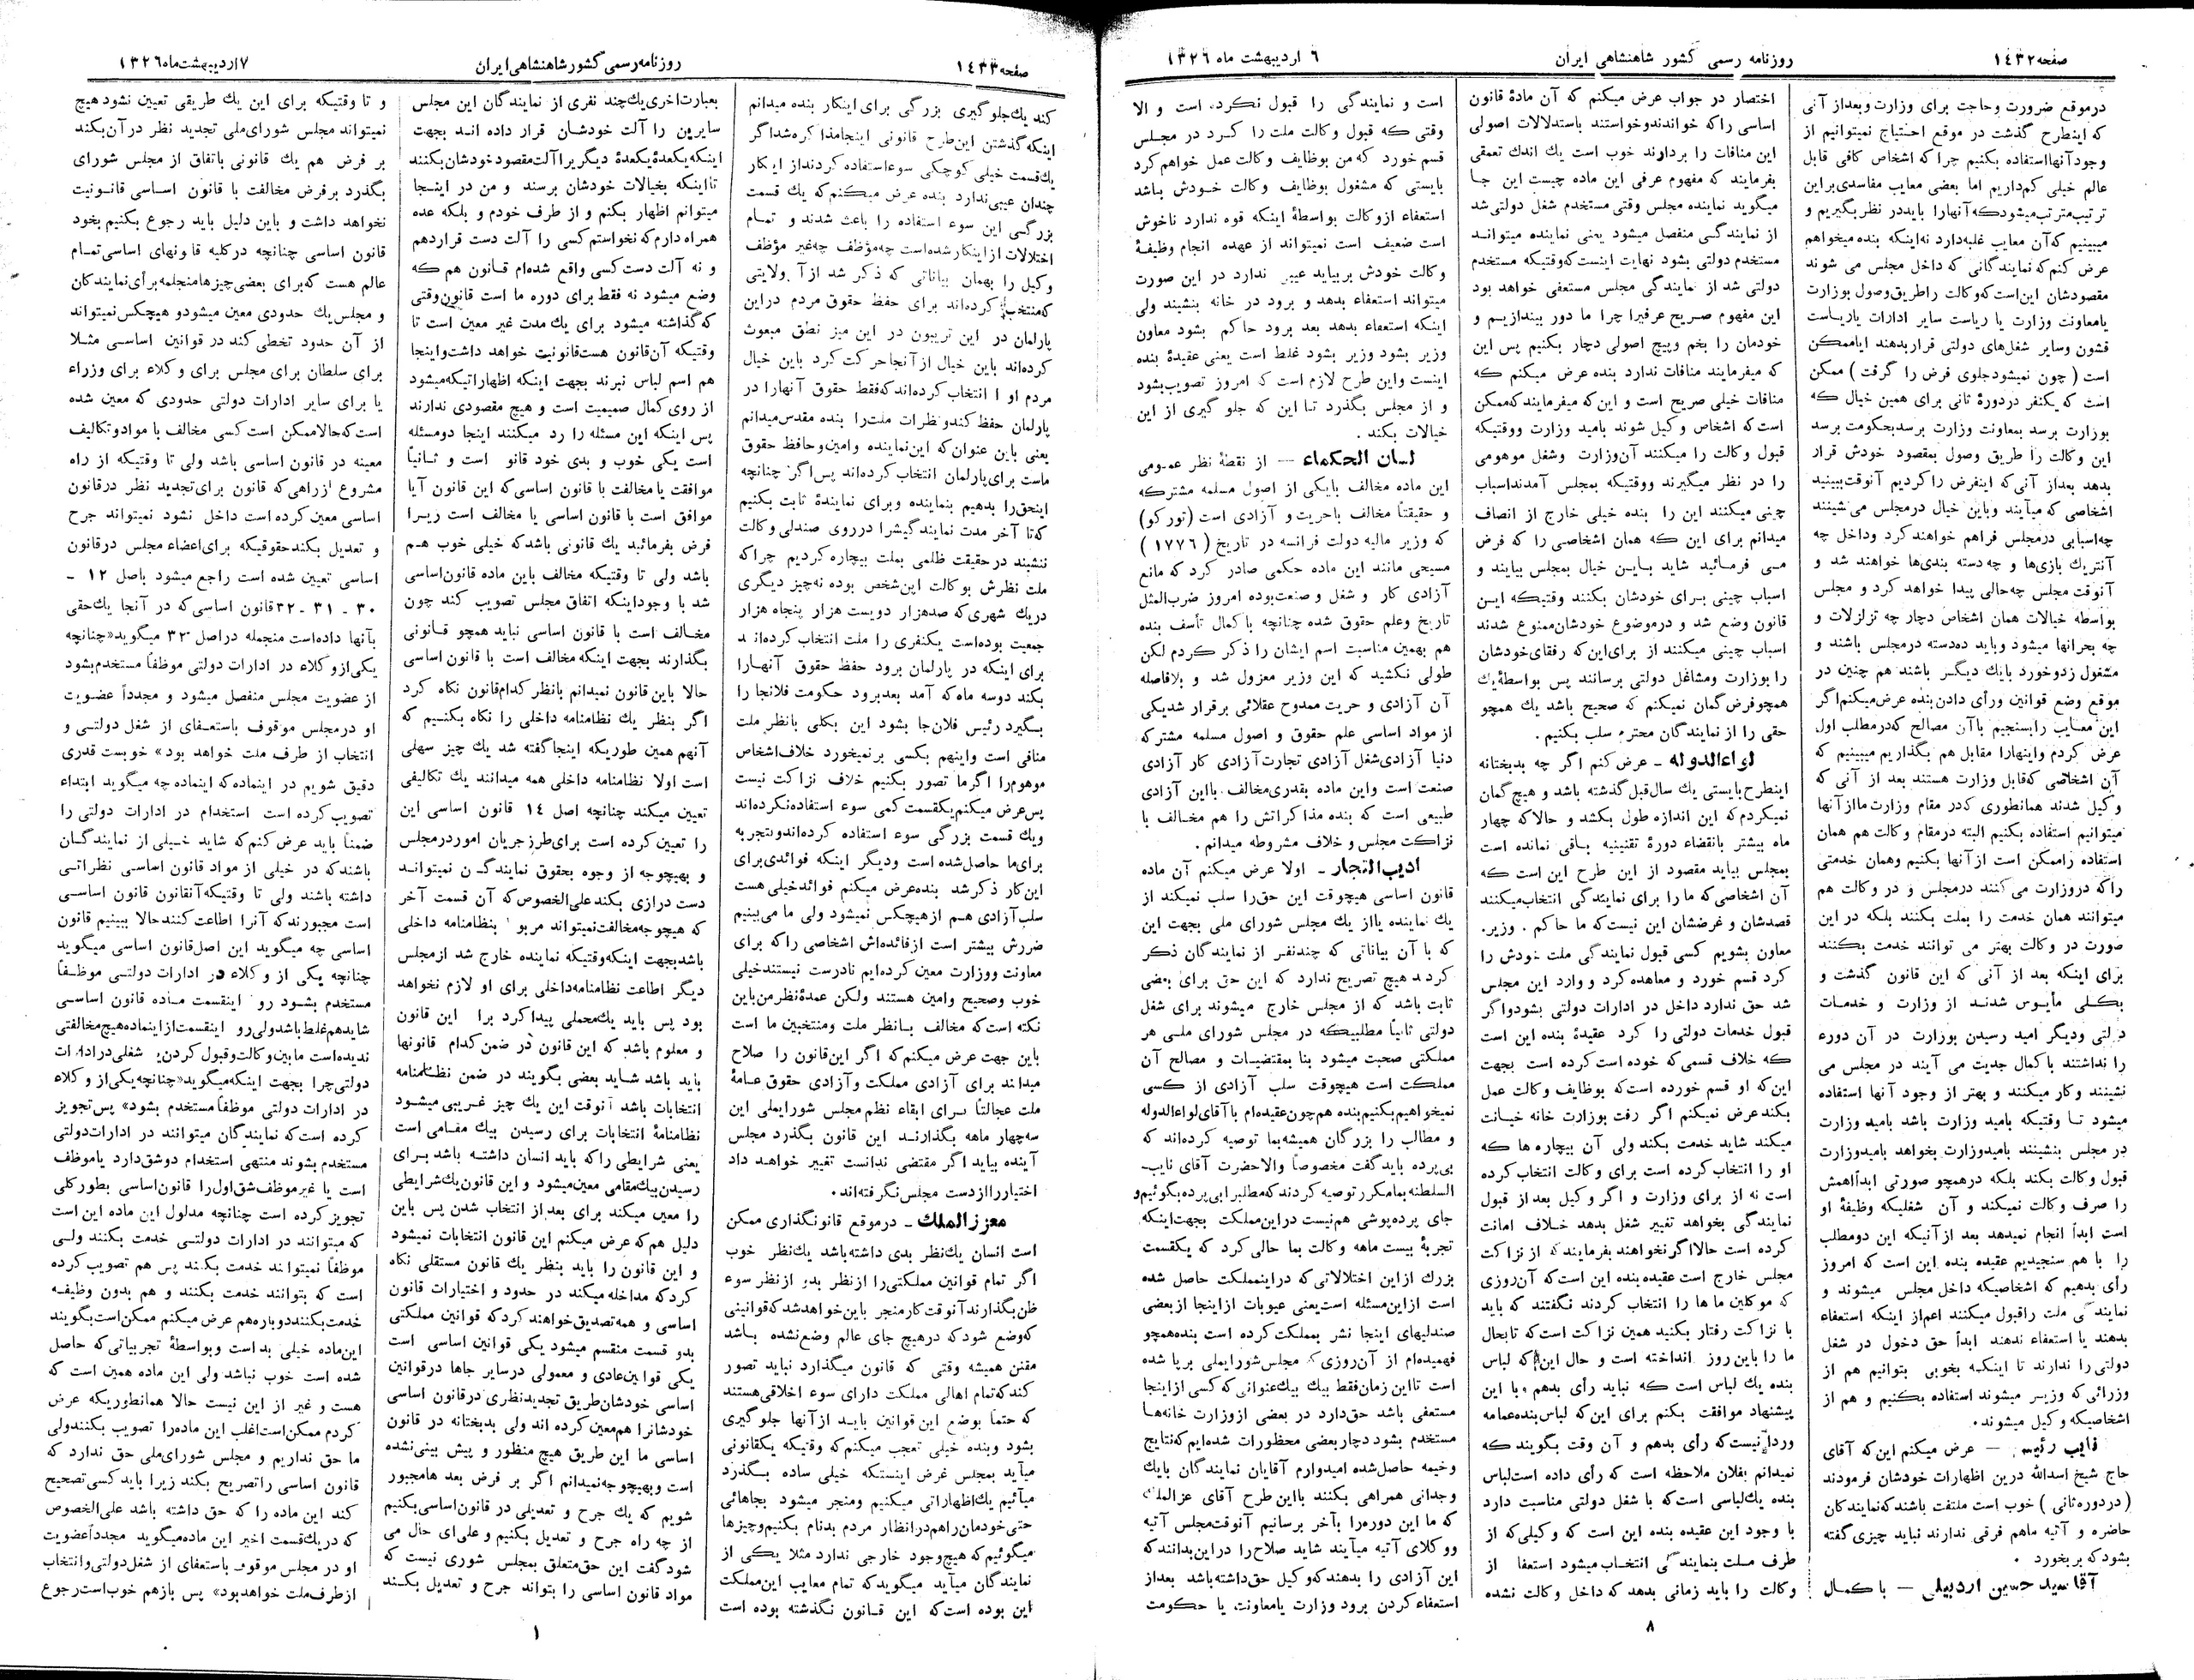 صفحه ۱٤۳۲
روزنامه رسمی کشور شاهنشاهی ایران
٦ اردیبهشت ماه ۱۳۲٦
درموقع ضرورت وحاجت برای وزارت وبعداز آنی
که اینطرح گذشت در موقع احتیاج نمیتوانیم از
وجود آنهااستفاده بکنیم چراکه اشخاص کافی قابل
عالم خیلی کم‌داریم اما بعضی معایب مفاسدی براین
ترتیب مترتب‌میشودکه‌آنهارا بایددر نظر بگیریم و
میبینیم که‌آن معایب غلبه‌دارد نه‌اینکه بنده میخواهم
عرض کنم‌که نمایندگانی که داخل مجلس می شوند
مقصودشان این‌است‌که‌وکالت راطریق‌وصول بوزارت
یامعاونت وزارت یا ریاست سایر ادارات یاریاست
قشون وسایر شغل‌های دولتی قراربدهند ایاممکن
است ( چون نمیشودجلوی فرض را گرفت ) ممکن
است که یکنفر دردورهٔ ثانی برای همین خیال که
بوزارت برسد بمعاونت وزارت برسدبحکومت برسد
این وکالت را طریق وصول بمقصود خودش قرار
بدهد بعداز آنی‌که اینفرض را کردیم آنوقت‌ببینید
اشخاصی که میآیند وباین خیال درمجلس می‌نشینند
چه‌اسبابی درمجلس فراهم خواهند کرد وداخل چه
آنتریك بازی‌ها و چه دسته بندی‌ها خواهند شد و
آنوقت مجلس چه‌حالی پیدا خواهد کرد و مجلس
بواسطه خیالات همان اشخاص دچار چه تزلزلات و
چه بحرانها میشود وباید ده‌دسته درمجلس باشند و
مشغول زدوخورد بایك دیگر باشند هم چنین در
موقع وضع قوانین ورأی دادن‌بنده عرض‌میکنم‌اگر
این معایب رابسنجیم باآن مصالح که‌درمطلب اول
عرض کردم واینهارا مقابل هم بگذاریم میبینیم که
آن اشخاصی که‌قابل وزارت هستند بعد از آنی که
وکیل شدند همانطوری که‌در مقام وزارت مااز آنها
میتوانیم استفاده بکنیم البته درمقام وکالت هم همان
استفاده راممکن است از آنها بکنیم وهمان خدمتی
راکه دروزارت می‌کنند درمجلس و در وکالت هم
میتوانند همان خدمت را بملت بکنند بلکه در این
صورت در وکالت بهتر می توانند خدمت بکنند
برای اینکه بعد از آنی که این قانون گذشت و
بکلی مأیوس شدند از وزارت و خدمات
دولتی ودیگر امید رسیدن بوزارت در آن دوره
را نداشتند باکمال جدیت می آیند در مجلس می
نشینند وکار میکنند و بهتر از وجود آنها استفاده
میشود تا وقتیکه بامید وزارت باشد بامید وزارت
در مجلس بنشینند بامیدوزارت بخواهد بامیدوزارت
قبول وکالت بکند بلکه درهمچو صورتی ابداًاهمش
را صرف وکالت نمیکند و آن شغلیکه وظیفهٔ او
است ابداً انجام نمیدهد بعد از آنیکه این دومطلب
را با هم سنجیدیم عقیده بنده این است که امروز
رأی بدهیم که اشخاصیکه داخل مجلس میشوند و
نمایندگی ملت راقبول میکنند اعم‌از اینکه استعفاء
بدهند یا استعفاء ندهند ابداً حق دخول در شغل
دولتی را ندارند تا اینکه بخوبی بتوانیم هم از
وزرائی‌که وزیر میشوند استفاده بکنیم و هم از
اشخاصیکه وکیل میشوند.
نایب رئیس — عرض میکنم این‌که آقای
حاج شیخ اسدالله درین اظهارات خودشان فرمودند
( دردوره‌ثانی ) خوب است ملتفت باشندکه‌نمایندگان
حاضره و آتیه ماهم فرقی ندارند نباید چیزی گفته
بشودکه بر بخورد .
آقا سید حسین اردبیلی — با کمال
اختصار در جواب عرض میکنم که آن مادهٔ قانون
اساسی راکه خواندندوخواستند باستدلالات اصولی
این منافات را بردارند خوب است یك اندك تعمقی
بفرمایند که مفهوم عرفی این ماده چیست این جا
میگوید نماینده مجلس وقتی مستخدم شغل دولتی‌شد
از نمایندگی منفصل میشود یعنی نماینده میتواند
مستخدم دولتی بشود نهایت اینست‌که‌وقتیکه مستخدم
دولتی شد از نمایندگی مجلس مستعفی خواهد بود
این مفهوم صریح عرفیرا چرا ما دور بیندازیم و
خودمان را بخم وپیچ اصولی دچار بکنیم پس این
که میفرمایند منافات ندارد بنده عرض میکنم که
منافات خیلی صریح است و این‌که میفرمایند که‌ممکن
است‌که اشخاص وکیل شوند بامید وزارت ووقتیکه
قبول وکالت را میکنند آن‌وزارت وشغل موهومی
را در نظر میگیرند ووقتیکه بمجلس آمدنداسباب
چینی میکنند این را بنده خیلی خارج از انصاف
میدانم برای این که همان اشخاصی را که فرض
می فرمائید شاید باین خیال بمجلس بیایند و
اسباب چینی برای خودشان بکنند وقتیکه این
قانون وضع شد و درموضوع خودشان‌ممنوع شدند
اسباب چینی میکنند از برای‌این‌که رفقای‌خودشان
را بوزارت ومشاغل دولتی برسانند پس بواسطهٔ‌یك
همچوفرض‌گمان نمیکنم که صحیح باشد یك همچو
حقی را از نمایندگان محترم سلب بکنیم .
لواءالدوله — عرض کنم اگر چه بدبختانه
اینطرح‌بایستی یك سال‌قبل‌گذشته باشد و هیچ‌گمان
نمیکردم‌که این اندازه طول بکشد و حالاکه چهار
ماه بیشتر بانقضاء دورهٔ تقنینیه باقی نمانده است
بمجلس بیاید مقصود از این طرح این است که
آن اشخاصی‌که ما را برای نمایندگی انتخاب‌میکنند
قصدشان و غرضشان این نیست‌که ما حاکم . وزیر.
معاون بشویم کسی قبول نمایندگی ملت خودش را
کرد قسم خورد و معاهده کرد و وارد این مجلس
شد حق ندارد داخل در ادارات دولتی بشوداگر
قبول خدمات دولتی را کرد عقیدهٔ بنده این است
که خلاف قسمی‌که خوده است‌کرده است بجهت
این‌که او قسم خورده است‌که بوظایف وکالت عمل
بکندعرض نمیکنم اگر رفت بوزارت خانه خیانت
میکند شاید خدمت بکند ولی آن بیچاره ها که
او را انتخاب کرده است برای وکالت انتخاب کرده
است نه از برای وزارت و اگر وکیل بعد از قبول
نمایندگی بخواهد تغییر شغل بدهد خلاف امانت
کرده است حالااگر نخواهند بفرمایند که از نزاکت
مجلس خارج است عقیده‌بنده این است‌که آن‌روزی
که موکلین ما ها را انتخاب کردند نگفتند که باید
با نزاکت رفتار بکنید همین نزاکت است‌که تابحال
ما را باین روز انداخته است و حال این که لباس
بنده یك لباس است که نباید رأی بدهم و با این
پیشنهاد موافقت بکنم برای این‌که لباس‌بنده‌عمامه
نیست‌که رأی بدهم و آن وقت بگویند که
نمیدانم بفلان ملاحظه است که رأی داده است‌لباس
بنده یك‌لباسی است‌که با شغل دولتی مناسبت دارد
با وجود این عقیده بنده این است که وکیلی‌که از
طرف ملت بنمایندگی انتخاب میشود استعفا از
وکالت را باید زمانی بدهد که داخل وکالت نشده
است و نمایندگی را قبول نکرده است و الا
وقتی که قبول وکالت ملت را کرد در مجلس
قسم خورد که‌من بوظایف وکالت عمل خواهم‌کرد
بایستی که مشغول بوظایف وکالت خودش باشد
استعفاء ازوکالت بواسطهٔ اینکه قوه ندارد ناخوش
است ضعیف است نمیتواند از عهده انجام وظیفهٔ
وکالت خودش بربیاید عیبی ندارد در این صورت
میتواند استعفاء بدهد و برود در خانه بنشیند ولی
اینکه استعفاء بدهد بعد برود حاکم بشود معاون
وزیر بشود وزیر بشود غلط است یعنی عقیدهٔ بنده
اینست واین طرح لازم است که امروز تصویب‌بشود
و از مجلس بگذرد تااین که جلو گیری از این
خیالات بکند .
لسان الحکماء — از نقطهٔ نظر عمومی
این ماده مخالف بایکی از اصول مسلمه مشترکه
و حقیقتاً مخالف باحریت و آزادی است (تورکو)
که وزیر مالیه دولت فرانسه در تاریخ ( ۱۷۷٦ )
مسیحی مانند این ماده حکمی صادر کرد که مانع
آزادی کار و شغل و صنعت‌بوده امروز ضرب‌المثل
تاریخ وعلم حقوق شده چنانچه باکمال تأسف بنده
هم بهمین مناسبت اسم ایشان را ذکر کردم لکن
طولی نکشید که این وزیر معزول شد و بلافاصله
آن آزادی و حریت ممدوح عقلائی برقرار شدیکی
از مواد اساسی علم حقوق و اصول مسلمه مشترکه
دنیا آزادی‌شغل آزادی تجارت‌آزادی کار آزادی
صنعت است واین ماده بقدری‌مخالف بااین آزادی
طبیعی است که بنده مذاکراتش را هم مخالف با
نزاکت مجلس و خلاف مشروطه میدانم.
ادیب‌التجار — اولا عرض میکنم آن ماده
قانون اساسی هیچوقت این حق‌را سلب نمیکند از
یك نماینده یااز یك مجلس شورای ملی بجهت این
که با آن بیاناتی که چندنفر از نمایندگان ذکر
کردند هیچ تصریح ندارد که این حق برای بعضی
ثابت باشد که از مجلس خارج میشوند برای شغل
دولتی ثانیاً مطلبیکه در مجلس شورای ملی هر
مملکتی صحبت میشود بنا بمقتضیات و مصالح آن
مملکت است هیچوقت سلب آزادی از کسی
نمیخواهیم‌بکنیم‌بنده هم‌چون‌عقیده‌ام باآقای‌لواءالدوله
و مطالب را بزرگان همیشه‌بما توصیه کرده‌اند که
بی‌پرده بایدگفت مخصوصاً والاحضرت آقای نایب-
السلطنه بمامکررتوصیه کردندکه‌مطلب‌رابی‌پرده‌بگوئیم‌و
جای پرده‌پوشی هم‌نیست دراین‌مملکت بجهت‌اینکه
تجربهٔ بیست ماهه وکالت بما حالی کرد که یکقسمت
بزرك ازاین اختلالاتی‌که دراینمملکت حاصل شده
است ازاین‌مسئله است‌یعنی عیوبات ازاینجا ازبعضی
صندلیهای اینجا نشر بمملکت‌کرده است بنده‌همچو
فهمیده‌ام از آن‌روزی‌که مجلس‌شورایملی برپا شده
است تااین زمان‌فقط بیك بیك‌عنوانی‌که‌کسی ازاینجا
مستعفی باشد حق‌دارد در بعضی ازوزارت خانه‌ها
مستخدم بشود دچاربعضی محظورات شده‌ایم‌که‌نتایج
وخیمه حاصل‌شده امیدوارم آقایان نمایندگان بایك
وجدانی همراهی بکنند بااین طرح آقای عزالملك
که ما این دوره‌را بآخر برسانیم آنوقت‌مجلس آتیه
ووکلای آتیه میآیند شاید صلاح‌را دراین‌بدانندکه
این آزادی را بدهندکه‌وکیل حق‌داشته‌باشد بعداز
استعفاءکردن برود وزارت یامعاونت یا حکومت
۸
صفحه ۱٤۳۳
روزنامه رسمی کشور شاهنشاهی ایران
۷ اردیبهشت ماه ۱۳۲٦
کند یك‌جلوگیری بزرگی برای اینکار بنده میدانم
اینکه‌گذشتن این‌طرح قانونی اینجامذاکره‌شداگر
یك‌قسمت خیلی کوچکی سوءاستفاده کردنداز اینکار
چندان عیبی‌ندارد بنده عرض میکنم‌که یك قسمت
بزرگی این سوء استفاده را باعث شدند و تمام
اختلالات ازاینکارشده‌است چه‌مؤظف چه‌غیر مؤظف
وکیل را بهمان بیاناتی که ذکر شد از آن ولایتی
که‌منتخب کرده‌اند برای حفظ حقوق مردم دراین
پارلمان در این تریبون در این میز نطق مبعوث
کرده‌اند باین خیال ازآنجاحرکت کرد باین خیال
مردم او را انتخاب کرده‌اندکه‌فقط حقوق آنهارا در
پارلمان حفظ کندونظرات ملت‌را بنده مقدس‌میدانم
یعنی باین عنوان‌که این‌نماینده وامین‌وحافظ حقوق
ماست برای‌پارلمان انتخاب کرده‌اند پس‌اگر چنانچه
اینحق‌را بدهیم بنماینده وبرای نمایندهٔ ثابت بکنیم
که‌تا آخر مدت نمایندگیش‌را درروی صندلی وکالت
ننشیند درحقیقت ظلمی بملت بیچاره کردیم چراکه
ملت نظرش بوکالت این‌شخص بوده نه‌چیز دیگری
دریك شهری‌که صدهزار دویست هزار پنجاه هزار
جمعیت بوده‌است یکنفری را ملت انتخاب کرده‌اند
برای اینکه در پارلمان برود حفظ حقوق آنهارا
بکند دوسه ماه‌که آمد بعدبرود حکومت فلانجا را
بگیرد رئیس فلان‌جا بشود این بکلی بانظر ملت
منافی است واینهم بکسی برنمیخورد خلاف‌اشخاص
موهوم‌را اگرما تصور بکنیم خلاف نزاکت نیست
پس‌عرض میکنم‌یکقسمت‌کمی سوء استفاده‌نکرده‌اند
ویك قسمت بزرگی سوء استفاده کرده‌اندوتجربه
برای‌ما حاصل‌شده است ودیگر اینکه فوائدی‌برای
این‌کار ذکرشد بنده‌عرض میکنم فوائدخیلی هست
سلب آزادی هم ازهیچکس نمیشود ولی ما می‌بینیم
ضررش بیشتر است ازفائده‌اش اشخاصی راکه برای
معاونت ووزارت معین کرده‌ایم نادرست نیستندخیلی
خوب وصحیح وامین هستند ولکن عمدهٔ‌نظرمن‌باین
نکته است‌که مخالف بانظر ملت ومنتخبین ما است
باین جهت عرض میکنم‌که اگر این‌قانون را صلاح
میداند برای آزادی مملکت وآزادی حقوق عامهٔ
ملت عجالتاً برای ابقاء نظم مجلس شورایملی این
سه‌چهار ماهه بگذارند این قانون بگذرد مجلس
آینده بیاید اگر مقتضی ندانست تغییر خواهد داد
اختیاررا ازدست مجلس‌نگرفته‌اند.
معزز الملك — درموقع قانونگذاری ممکن
است انسان یك‌نظر بدی داشته‌باشد یك‌نظر خوب
اگر تمام قوانین مملکتی‌را ازنظر بدو ازنظر سوء
ظن بگذارندآنوقت کارمنجر باین‌خواهدشدکه‌قوانینی
که‌وضع شودکه درهیچ جای عالم وضع‌نشده باشد
مقنن همیشه وقتی که قانون میگذارد نباید تصور
کندکه‌تمام اهالی مملکت دارای سوء اخلاقی‌هستند
که حتماً بوضع این قوانین باید ازآنها جلوگیری
بشود وبنده خیلی تعجب میکنم‌که وقتیکه یکقانونی
میآید بمجلس غرض اینستکه خیلی ساده بگذرد
میآئیم یك‌اظهاراتی میکنیم ومنجر میشود بجاهائی
حتی‌خودمان‌راهم‌درانظار مردم بدنام بکنیم‌وچیزها
میگوئیم‌که هیچ‌وجود خارجی ندارد مثلا یکی از
نمایندگان میآید میگویدکه تمام معایب این‌مملکت
این بوده است‌که این قانون نگذشته بوده است
بعبارت‌اخری‌یك‌چند نفری از نمایندگان این مجلس
سایرین را آلت خودشان قرار داده اند بجهت
اینکه‌یکعدهٔ یکعدهٔ دیگریرا آلت‌مقصود خودشان‌بکنند
تااینکه بخیالات خودشان برسند و من در اینجا
میتوانم اظهار بکنم و از طرف خودم و بلکه عده
همراه دارم‌که نخواستم کسی را آلت دست قراردهم
و نه آلت دست کسی واقع شده‌ام قانون هم که
وضع میشود نه فقط برای دوره ما است قانون‌وقتی
که‌گذاشته میشود برای یك مدت غیر معین است تا
وقتیکه آن‌قانون هست‌قانونیت خواهد داشت‌واینجا
هم اسم لباس نبرند بجهت اینکه اظهاراتیکه‌میشود
از روی کمال صمیمیت است و هیچ مقصودی ندارند
پس اینکه این مسئله را رد میکنند اینجا دومسئله
است یکی خوب و بدی خود قانون است و ثانیاً
موافقت یا مخالفت با قانون اساسی‌که این قانون آیا
موافق است با قانون اساسی یا مخالف است زیرا
فرض بفرمائید یك قانونی باشدکه خیلی خوب هم
باشد ولی تا وقتیکه مخالف باین ماده قانون‌اساسی
شد با وجوداینکه اتفاق مجلس تصویب کند چون
مخالف است با قانون اساسی نباید همچو قانونی
بگذارند بجهت اینکه مخالف است با قانون اساسی
حالا باین قانون نمیدانم بانظر کدام‌قانون نگاه کرد
اگر بنظر یك نظامنامه داخلی را نگاه بکنیم که
آنهم همین طوریکه اینجاگفته شد یك چیز سهلی
است اولا نظامنامه داخلی همه میدانند یك تکالیفی
تعیین میکند چنانچه اصل ۱٤ قانون اساسی این
را تعیین کرده است برای‌طرز جریان اموردرمجلس
و بهیچوجه از وجوه بحقوق نمایندگان نمیتواند
دست درازی بکند علی‌الخصوص‌که آن قسمت آخر
که هیچوجه مخالفت‌نمیتواند مربوط بنظامنامه داخلی
باشدبجهت اینکه‌وقتیکه نماینده خارج شد ازمجلس
دیگر اطاعت نظامنامه‌داخلی برای او لازم نخواهد
بود پس باید یك‌محملی پیداکرد برای این قانون
و معلوم باشد که این قانون در ضمن‌کدام قانونها
باید باشد شاید بعضی بگویند در ضمن نظامنامه
انتخابات باشد آنوقت این یك چیز غریبی میشود
نظامنامهٔ انتخابات برای رسیدن بیك مقامی است
یعنی شرایطی راکه باید انسان داشته باشد برای
رسیدن‌بیك‌مقامی معین‌میشود و این قانون‌یك‌شرایطی
را معین میکند برای بعد از انتخاب شدن پس باین
دلیل هم‌که عرض میکنم این قانون انتخابات نمیشود
و این قانون را باید بنظر یك قانون مستقلی نگاه
کردکه مداخله میکند در حدود و اختیارات قانون
اساسی و همه‌تصدیق‌خواهند کردکه قوانین مملکتی
بدو قسمت منقسم میشود یکی قوانین اساسی است
یکی قوانین‌عادی و معمولی درسایر جاها درقوانین
اساسی خودشان‌طریق تجدیدنظری درقانون اساسی
خودشانرا هم‌معین‌کرده اند ولی بدبختانه در قانون
اساسی ما این طریق هیچ منظور و پیش بینی‌نشده
است وبهیچوجه‌نمیدانم اگر بر فرض بعد هامجبور
شویم که یك جرح و تعدیلی در قانون‌اساسی‌بکنیم
از چه راه جرح و تعدیل بکنیم و علی‌ای حال می
شودگفت این حق‌متعلق بمجلس شوری نیست که
مواد قانون اساسی را بتواند جرح و تعدیل بکند
و تا وقتیکه برای این یك طریقی تعیین نشود هیچ
نمیتواند مجلس شورای‌ملی تجدید نظر درآن‌بکند
بر فرض هم یك قانونی باتفاق از مجلس شورای
بگذرد برفرض مخالفت با قانون اساسی قانونیت
نخواهد داشت و باین دلیل باید رجوع بکنیم بخود
قانون اساسی چنانچه درکلیه قانونهای اساسی‌تمام
عالم هست که‌برای بعضی چیزهامنجمله برأی‌نمایندگان
و مجلس‌یك حدودی معین میشودو هیچکس‌نمیتواند
از آن حدود تخطی‌کند در قوانین اساسی مثلا
برای سلطان برای مجلس برای وکلاء برای وزراء
یا برای سایر ادارات دولتی حدودی که معین شده
است‌که‌حالاممکن است‌کسی مخالف با موادوتکالیف
معینه در قانون اساسی باشد ولی تا وقتیکه از راه
مشروع از راهی‌که قانون برای‌تجدید نظر درقانون
اساسی معین‌کرده است داخل نشود نمیتواند جرح
و تعدیل بکندحقوقیکه برای‌اعضاء مجلس درقانون
اساسی تعیین شده است راجع میشود باصل ۱۲ -
۳۰ - ۳۱ - ۳۲قانون اساسی‌که در آنجا یك‌حقی
بآنها داده‌است منجمله دراصل ۳۲ میگوید«چنانچه
یکی‌ازوکلاء در ادارات دولتی موظفاً مستخدم‌بشود
از عضویت مجلس منفصل میشود و مجدداً عضویت
او درمجلس موقوف باستعفای از شغل دولتی و
انتخاب از طرف ملت خواهد بود» خوبست قدری
دقیق شویم در اینماده‌که اینماده چه میگوید ابتداء
تصویب‌کرده است استخدام در ادارات دولتی را
ضمناً باید عرض‌کنم‌که شاید خیلی از نمایندگان
باشندکه در خیلی از مواد قانون اساسی نظراتی
داشته باشند ولی تا وقتیکه‌آنقانون قانون اساسی
است مجبورندکه آنرا اطاعت‌کنندحالا ببینیم قانون
اساسی چه میگوید این اصل‌قانون اساسی میگوید
چنانچه یکی از وکلاء در ادارات دولتی موظفاً
مستخدم بشود اینقسمت ماده قانون اساسی
شایدهم‌غلط‌باشدولی اینقسمت‌ازاینماده‌هیچ‌مخالفتی
ندیده‌است مابین‌وکالت‌وقبول کردن شغلی‌درادارات
دولتی‌چرا بجهت اینکه‌میگوید«چنانچه‌یکی‌ازوکلاء
در ادارات دولتی موظفاًمستخدم بشود» پس‌تجویز
کرده است‌که نمایندگان میتوانند در ادارات‌دولتی
مستخدم بشوند منتهی استخدام دوشق‌دارد یاموظف
است یا غیرموظف‌شق‌اول‌را قانون‌اساسی بطورکلی
تجویز کرده است چنانچه مدلول این ماده این است
که میتوانند در ادارات دولتی خدمت بکنند ولی
موظفاً نمیتوانند خدمت بکنند پس هم تصویب کرده
است که بتوانند خدمت بکنند و هم بدون وظیفه
خدمت‌بکننددوباره‌هم عرض میکنم ممکن‌است‌بگویند
این‌ماده خیلی بداست وبواسطهٔ تجربیاتی‌که حاصل
شده است خوب نباشد ولی این ماده همین است که
هست و غیر از این نیست حالا همانطوریکه عرض
کردم ممکن‌است‌اغلب این ماده‌را تصویب بکنندولی
ما حق نداریم و مجلس شورای‌ملی حق ندارد که
قانون اساسی راتصریح بکند زیرا باید کسی‌تصحیح
کند این ماده را که حق داشته باشد علی‌الخصوص
که دریك‌قسمت اخیر این ماده‌میگوید مجدداًعضویت
او در مجلس موقوف باستعفای از شغل‌دولتی‌وانتخاب
ازطرف‌ملت خواهدبود» پس بازهم خوب‌است‌رجوع
۱